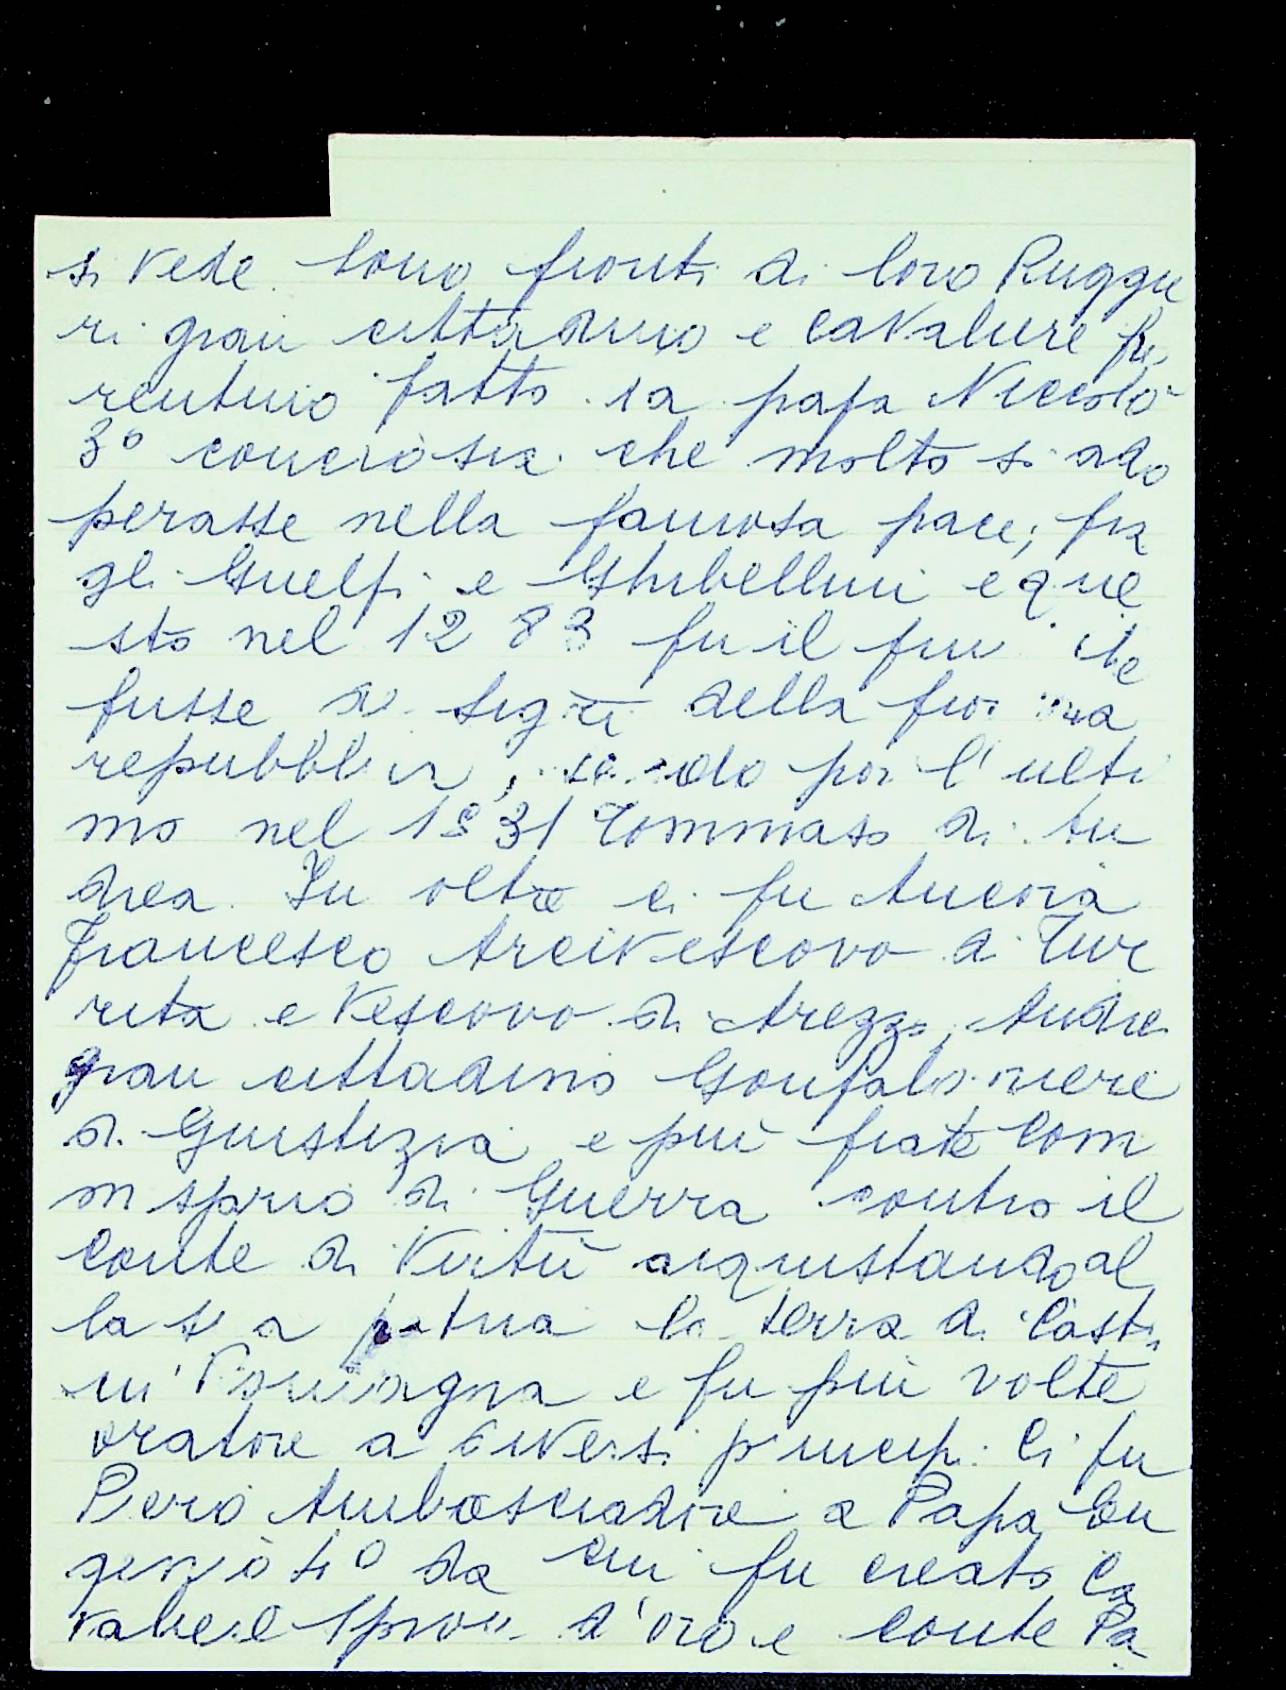 si vede. Sono fronti di loro Ruggie
ri gran cittadino e cavaliere fio
rentino fatto da papa Niccolò
3° conciosia che molto si ado
perasse nella famosa pace, fra
gli Guelfi e Ghibellini e que
sto nel 1283 fu il che
fusse de Sigri della
repubblica, po l'ulti
mo nel 1531 Tommaso di An
drea. In oltre ci fu Ancora
Francesco Arcivescovo di Tur
rita e Vescovo di Arezzo, Andrea
gran cittadino Gonfaloniere
di Giustizia e più fiate Com
misario di Guerra contro il
Conte di Virtù acquistando al
la sua patria la terra di Castr
in Romagna e fu più volte
oratore a diversi principi. Ci fu
Piero Ambasciadore a Papa Eu
genio 4° da cui fu creato Ca
valiere Spron d'oro e conte Pa